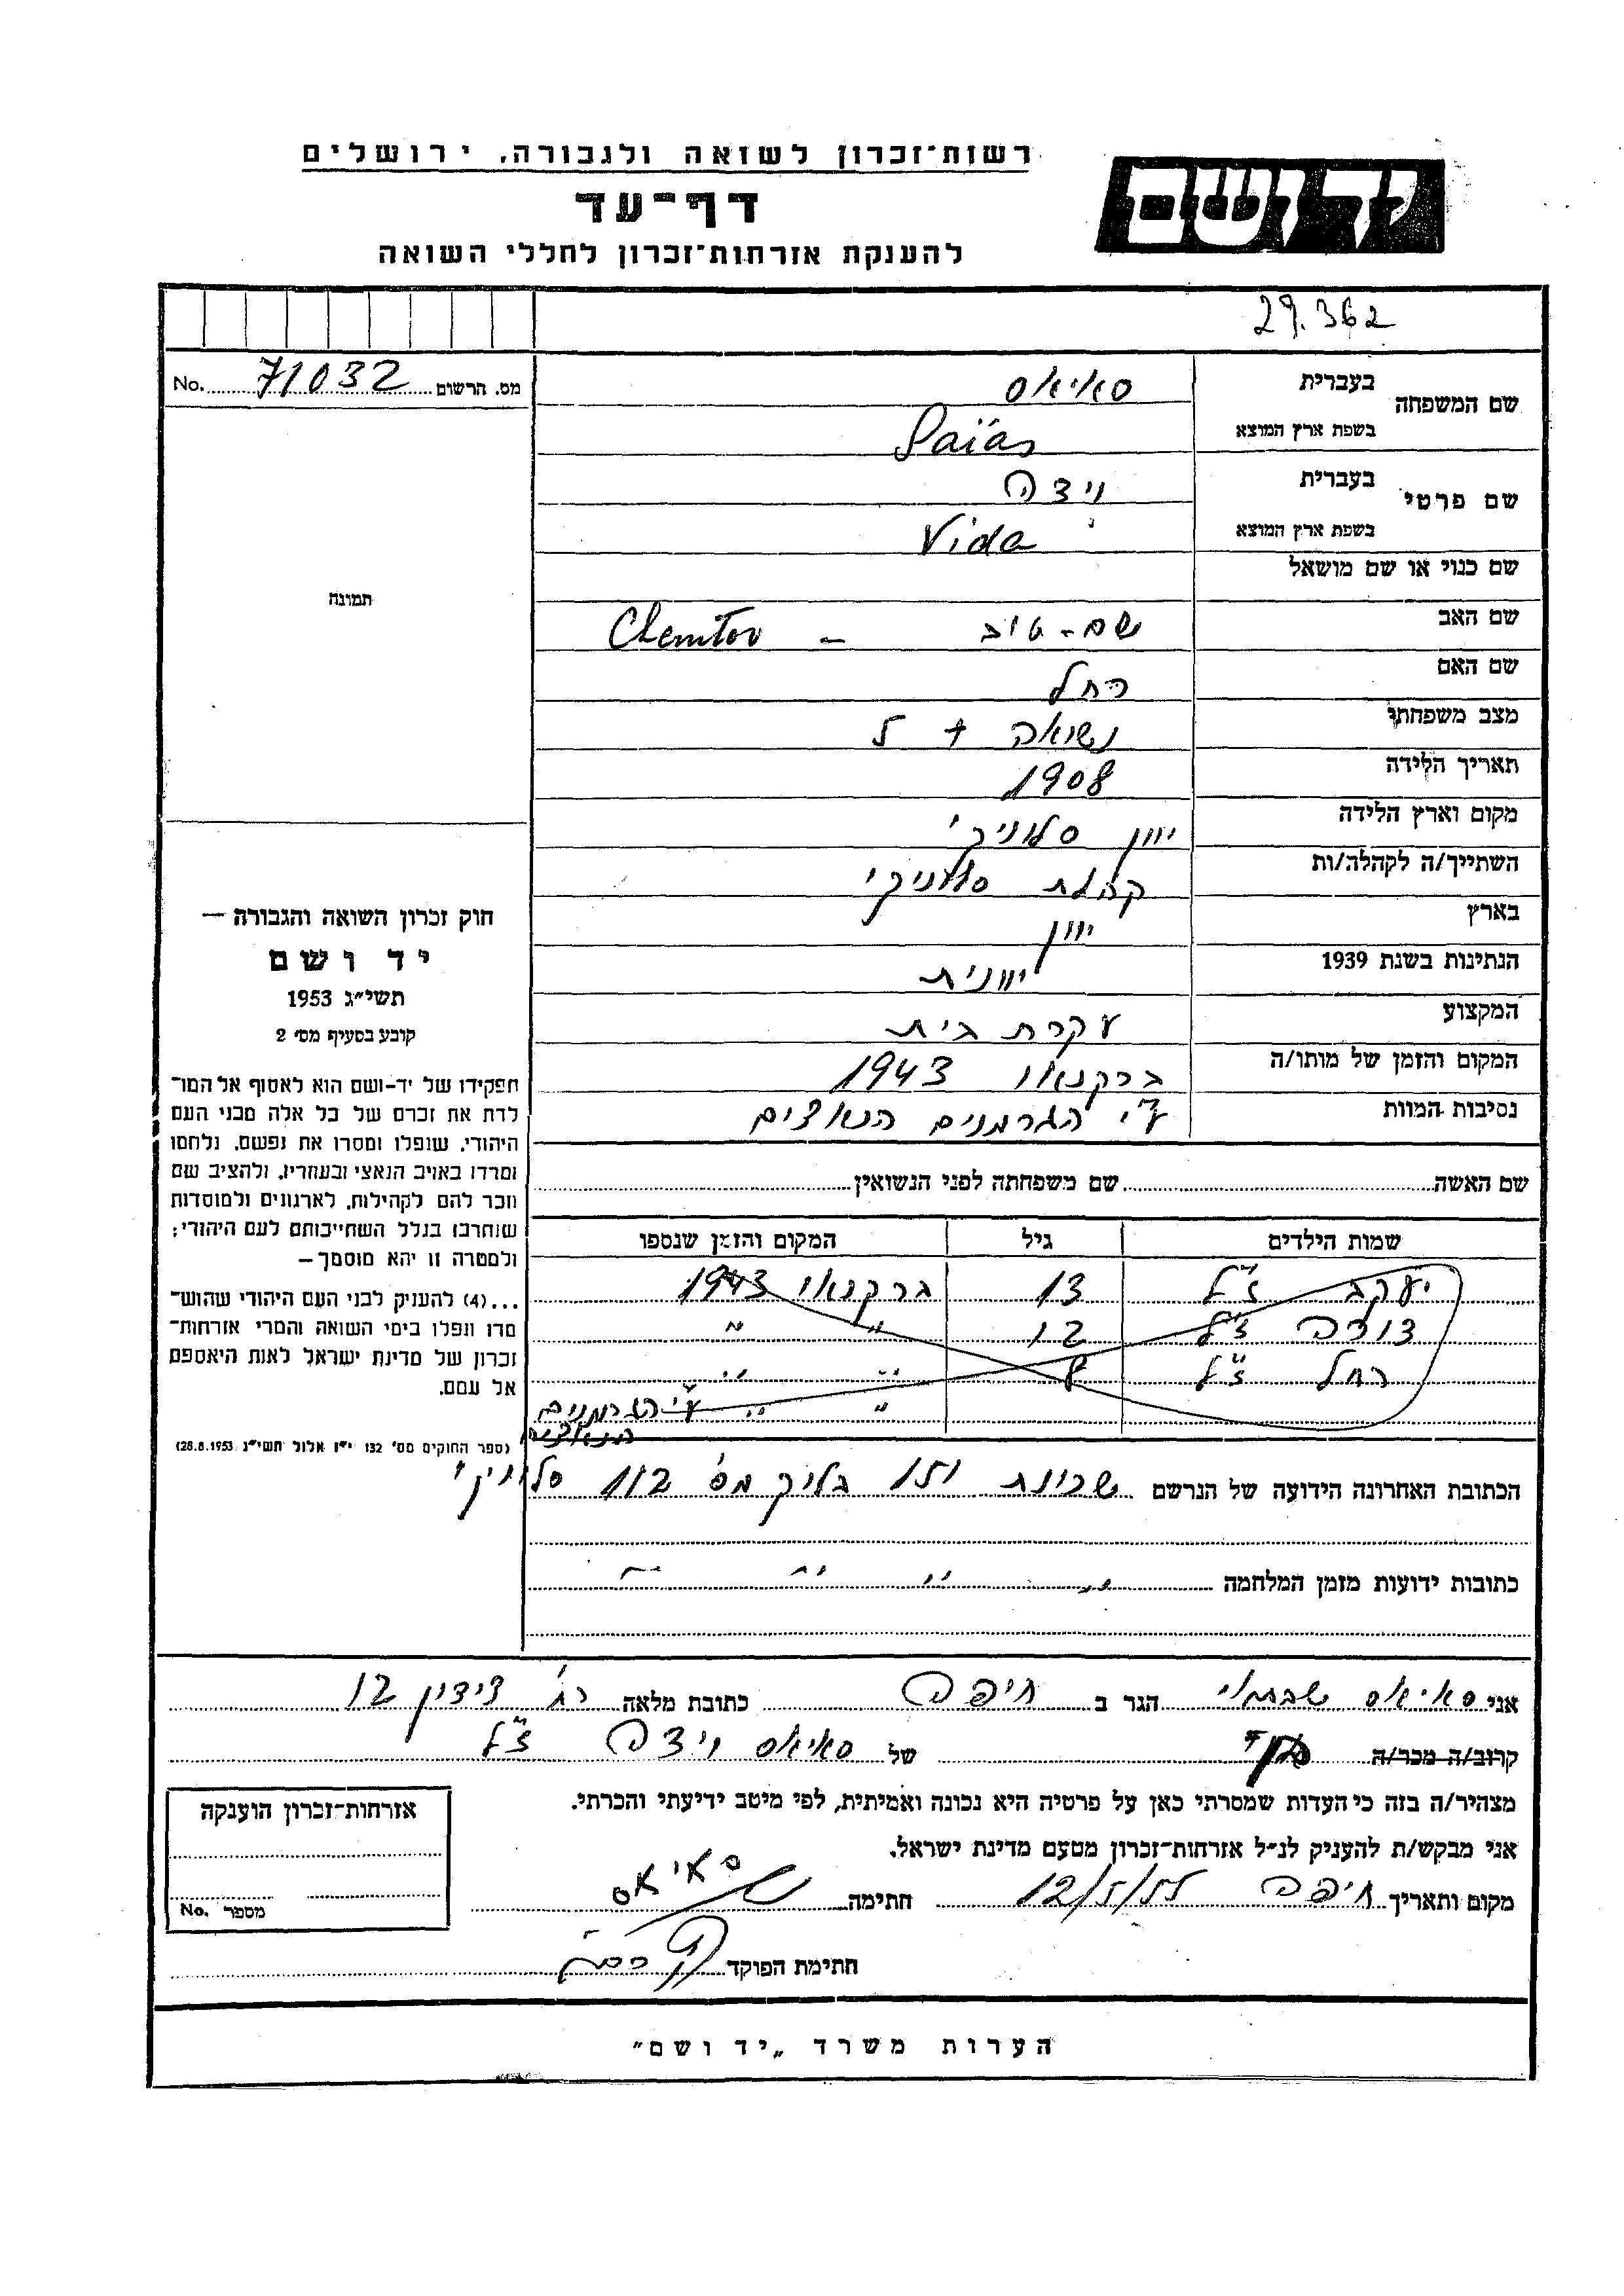 רשות־זכרון לשואה ולגבורה, ירושלים
יד ושם
דף־עד
להענקת אזרחות־זכרון לחללי השואה
29.362
מס. הרשום 71032 No.
שם המשפחה בעברית סאיאס
בשפת ארץ המוצא Saïas
שם פרטי בעברית וידה
בשפת ארץ המוצא Vida
שם כנוי או שם מושאל
שם האב שם-טוב - Chemtov
שם האם רחל
מצב משפחתי נשואה +
תאריך הלידה 1908
מקום וארץ הלידה יוון סלוניקי
השתייך/ה לקהלה/ות קהלת סלוניקי
בארץ יוון
הנתינות בשנת 1939 יוונית
המקצוע עקרת בית
המקום והזמן של מותו/ה ברקנאו 1943
נסיבות המוות ע"י הגרמנים הנאצים
תמונה
חוק זכרון השואה והגבורה —
יד ושם
תשי״ג 1953
קובע בסעיף מס׳ 2
תפקידו של יד-ושם הוא לאסוף אל המו־
לדת את זכרם של כל אלה מבני העם
היהודי, שנפלו ומסרו את נפשם, נלחמו
ומרדו באויב הנאצי ובעוזריו, ולהציב שם
וזכר להם לקהילות, לארגונים ולמוסדות
שנחרבו בגלל השתייכותם לעם היהודי;
ולמטרה זו יהא מוסמך—
...(4) להעניק לבני העם היהודי שהוש־
מדו ונפלו בימי השואה והמרי אזרחות־
זכרון של מדינת ישראל לאות היאספם
אל עמם.
(ספר החוקים מס׳ 132 י״ז אלול תשי״ג 28.8.1953)
שם האשה שם משפחתה לפני הנשואין
שמות הילדים גיל המקום והזמן שנספו
יעקב ז"ל 13 ברקנאו 1943
דורה ז"ל 12 " "
רחל ז"ל 8 " "
" " ע"י הגרמנים
הנאצים
הכתובת האחרונה הידועה של הנרשם שכונת מס סלוניקי
כתובות ידועות מזמן המלחמה " " " "
אני סאיאס שבתאי הגר ב חיפה כתובת מלאה רח' 12
קרוב/ה מכר/ה של סאיאס וידה ז"ל
מצהיר/ה בזה כי העדות שמסרתי כאן על פרטיה היא נכונה ואמיתית, לפי מיטב ידיעתי והכרתי.
אני מבקש/ת להעניק לנ״ל אזרחות־זכרון מטעם מדינת ישראל.
מקום ותאריך חיפה חתימה סאיאס
חתימת הפוקד
אזרחות־זכרון הוענקה
מספר No.
הערות משרד „יד ושם״